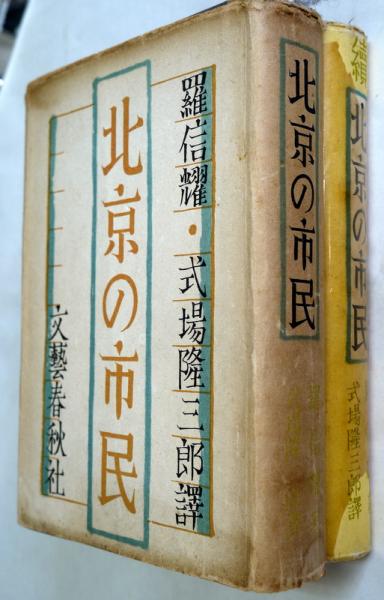 羅信耀・式場隆三郎譯
北京の市民
文藝春秋社
北京の市民
續
北京の市民
式場隆三郎譯